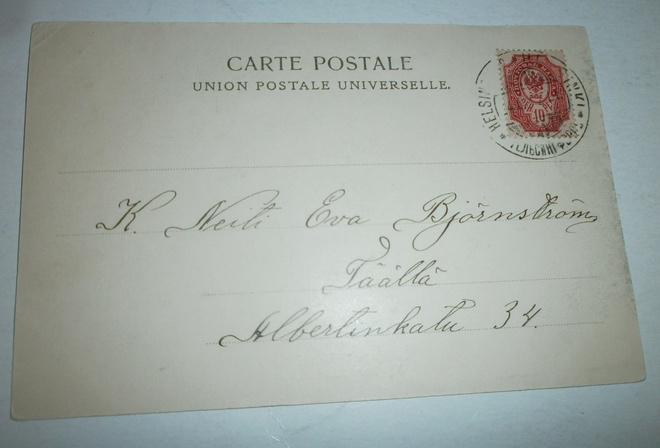 CARTE POSTALE
UNION POSTALE UNIVERSELLE.
10
K. Neiti Eva Björnström
Täällä
Albertinkatu 34.